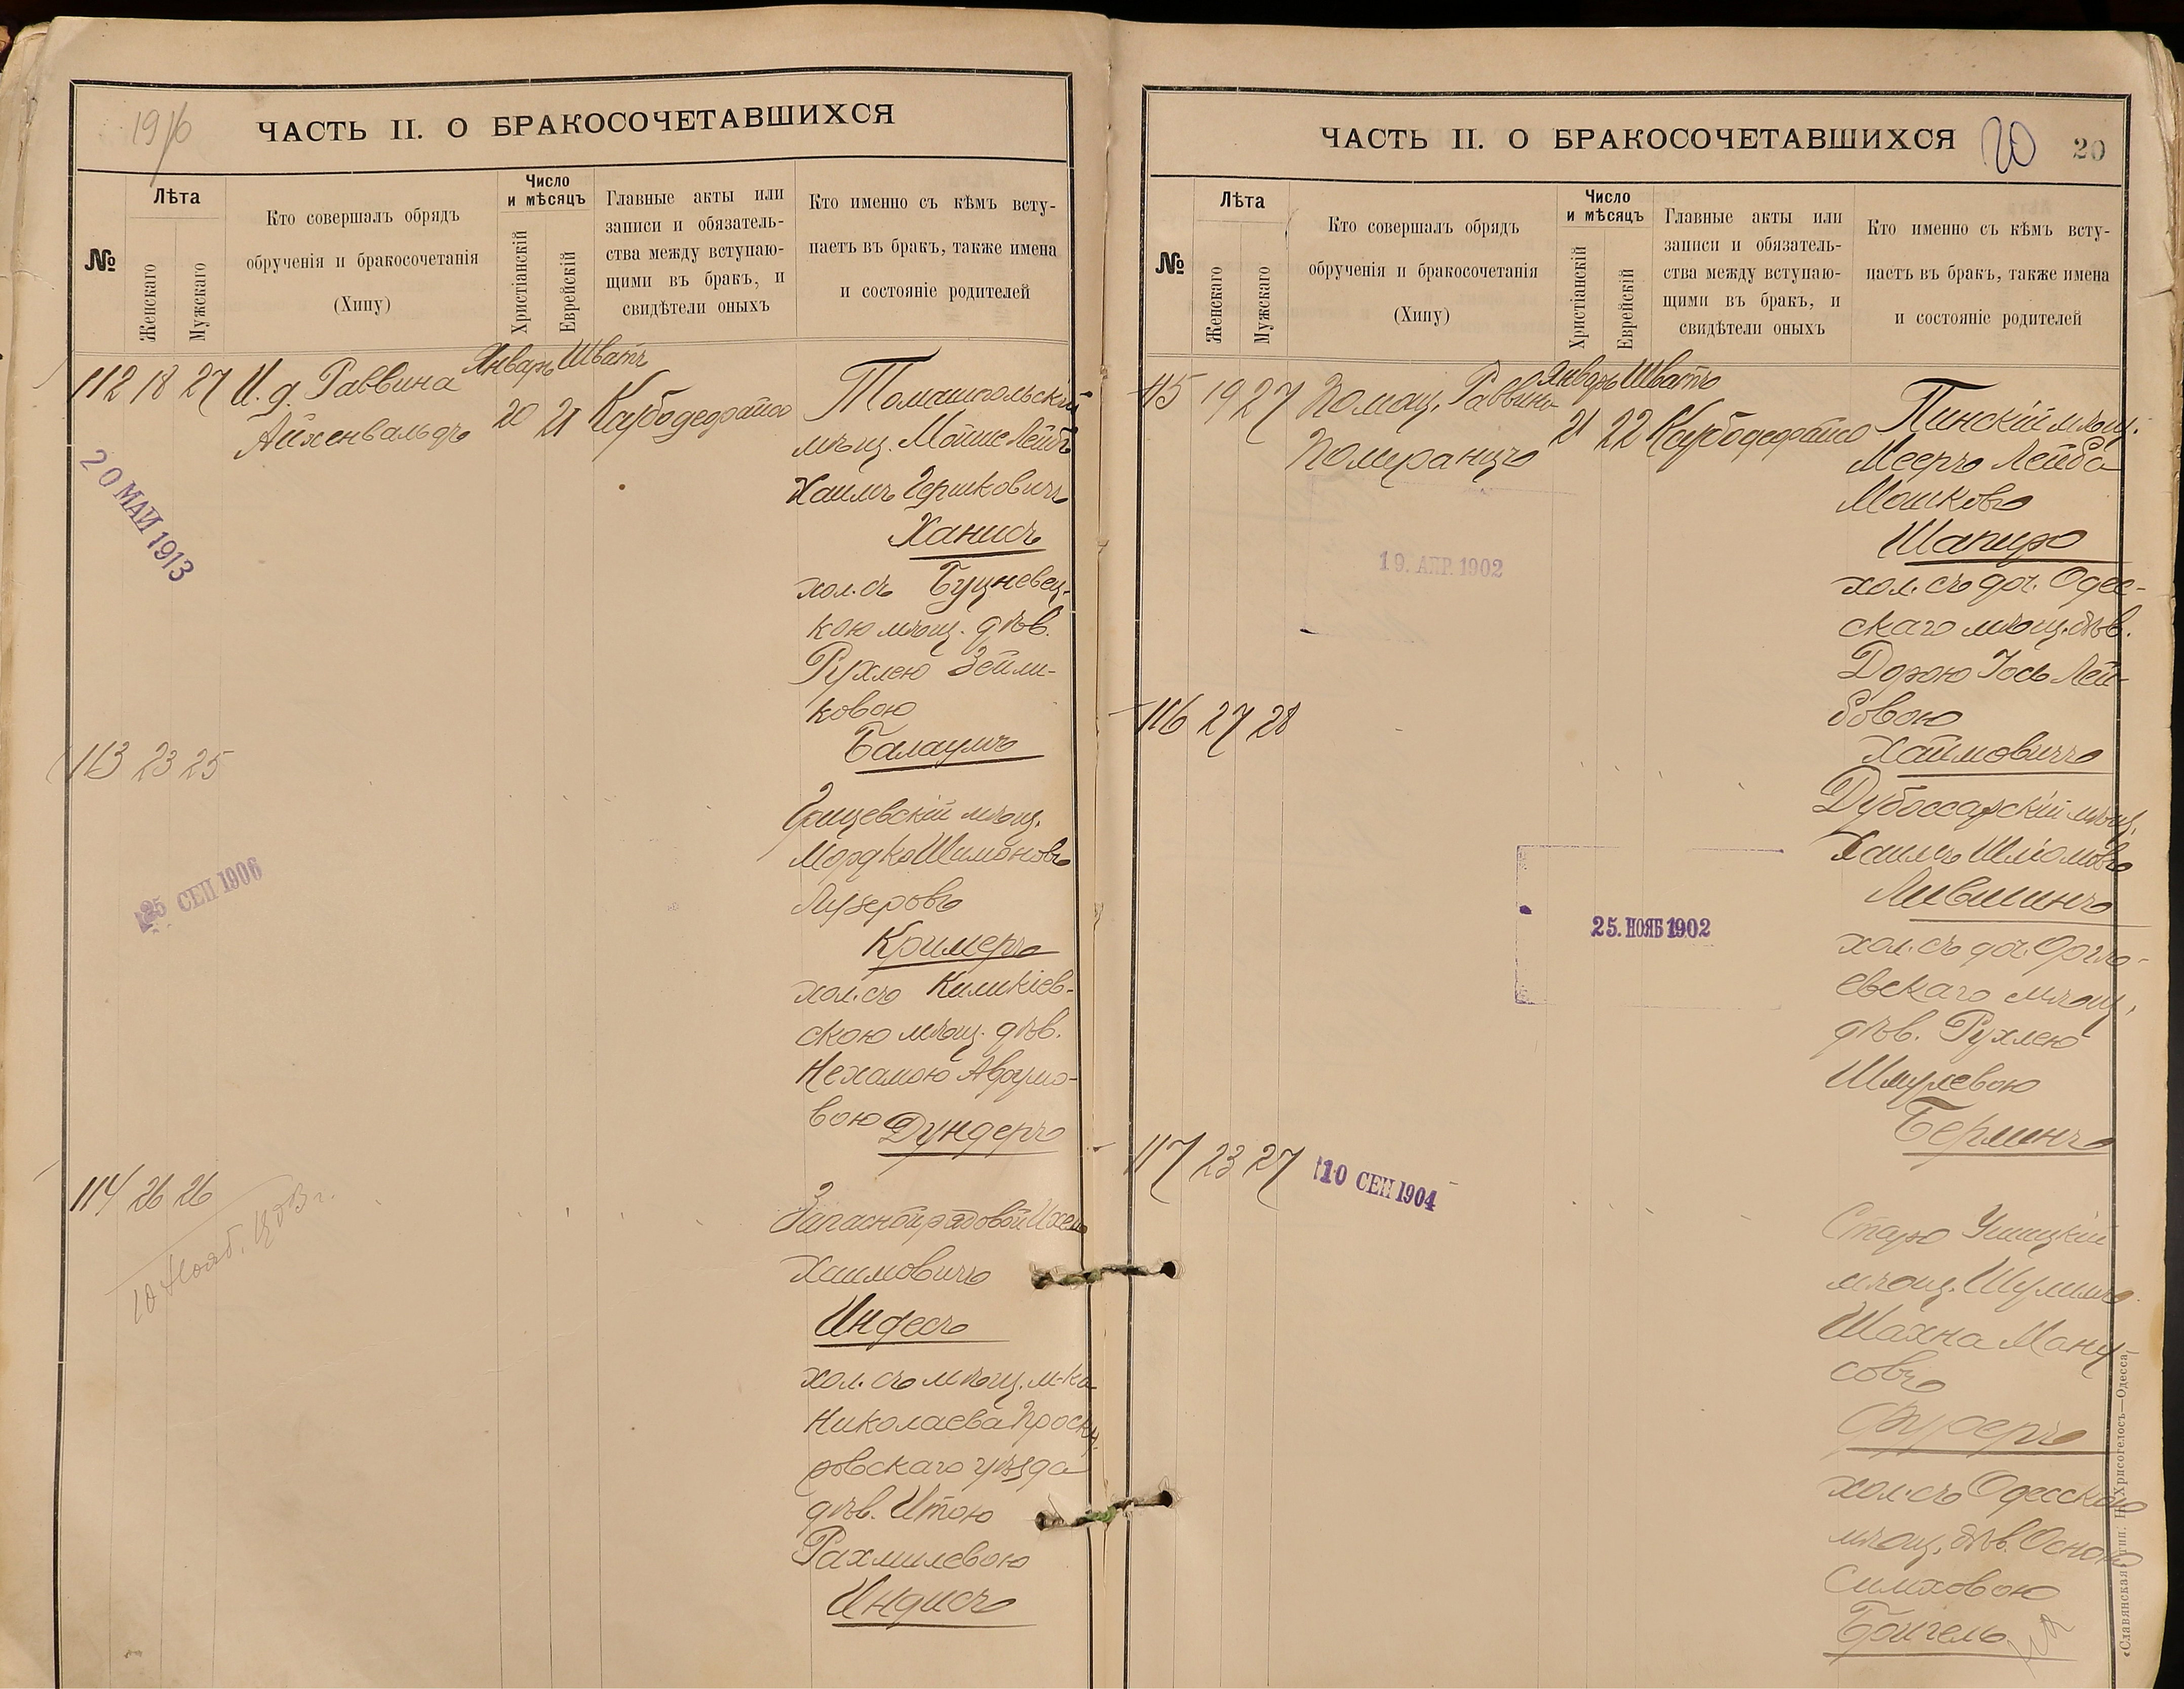 1916
ЧАСТЬ II. О БРАКОСОЧЕТАВШИХСЯ
№
Лѣта
Женскаго
Мужскаго
Кто совершалъ обрядъ
обрученія и бракосочетанія
(Хипу)
Число
и мѣсяцъ
Христіанскій
Еврейскій
Главные акты или
записи и обязатель-
ства между вступаю-
щими въ бракъ, и
свидѣтели оныхъ
Кто именно съ кѣмъ всту-
паетъ въ бракъ, также имена
и состояніе родителей
112 18 27 И. д. Раввина
Айхенвальдъ
Январь Шватъ
20 21
Томашпольскій
мѣщ. Мойше Лейбъ
Хаимъ Гершковичъ
Ханисъ
хол. съ Буцневец-
кою мѣщ. дѣв.
Рухлею Зейли-
ковою
Балаумъ
20 МАЙ 1913
113 23 25
Грицевскій мѣщ.
Мордко Шимоновъ
Лузеровъ
Кримеръ
хол. съ Киликіев-
скою мѣщ. дѣв.
Нехамою Аврумо-
вою Дундеръ
25 СЕН 1906
114 26 26
Запасной рядовой Ихель
Хаимовичъ
Индесъ
хол. съ мѣщ. м-ка
Николаева Проску-
ровскаго уѣзда
дѣв. Итою
Рахмилевою
Индисъ
ЧАСТЬ II. О БРАКОСОЧЕТАВШИХСЯ
20
20
№
Лѣта
Женскаго
Мужскаго
Кто совершалъ обрядъ
обрученія и бракосочетанія
(Хипу)
Число
и мѣсяцъ
Христіанскій
Еврейскій
Главные акты или
записи и обязатель-
ства между вступаю-
щими въ бракъ, и
свидѣтели оныхъ
Кто именно съ кѣмъ всту-
паетъ въ бракъ, также имена
и состояніе родителей
115 19 27 Помощ. Раввина
Померанцъ
Январь Шватъ
21 22
Пинскій мѣщ.
Мееръ Лейба
Мошковъ
Шапиро
хол. съ доч. Одес-
скаго мѣщ. дѣв.
Дорою Іось Лей-
бовою
Хаймовичъ
19. АПР. 1902
116 27 28
Дубоссарскій мѣщ.
Хаимъ Шліомовъ
Лившинъ
хол. съ доч. Оргѣ-
евскаго мѣщ.
дѣв. Рухлею
Шмулевою
Берлинъ
25. НОЯБ 1902
117 23 27
10 СЕН 1904
Старо Ушицкій
мѣщ. Шулимъ
Шахна Ману-
совъ
хол. съ Одесскою
мѣщ. дѣв. Осною
Симховою
Бригель
«Славянская» тип. Н. Хрисогелосъ—Одесса,